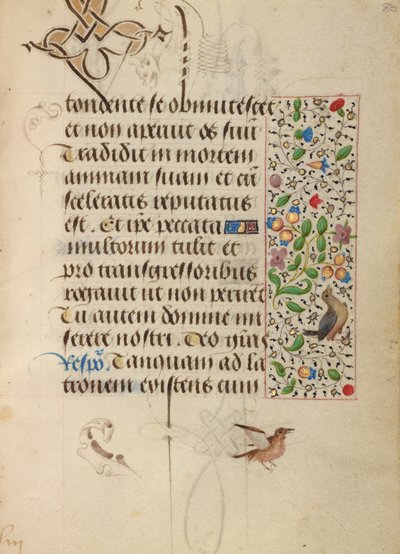 80
tondente se obmutescet
et non aperuit os suū
Tradidit in mortem
animam suam et cū
sceleratis reputatus
est. Et ip̄e peccata
multorum tulit et
pro transgressoribus
rogauit ut non perirēt
Tu autem domine mi
serere nostri. Deo grās
Tanquam ad la
tronem existens cum